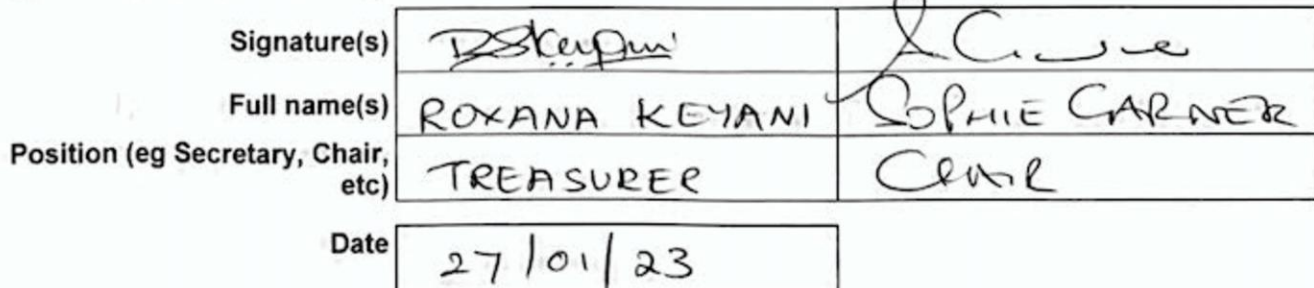 Signature(s)
Full name(s) ROXANA KEYANI SOPHIE CARNER
Position (eg Secretary, Chair,
etc) TREASURER CHAIR
Date 27/01/23